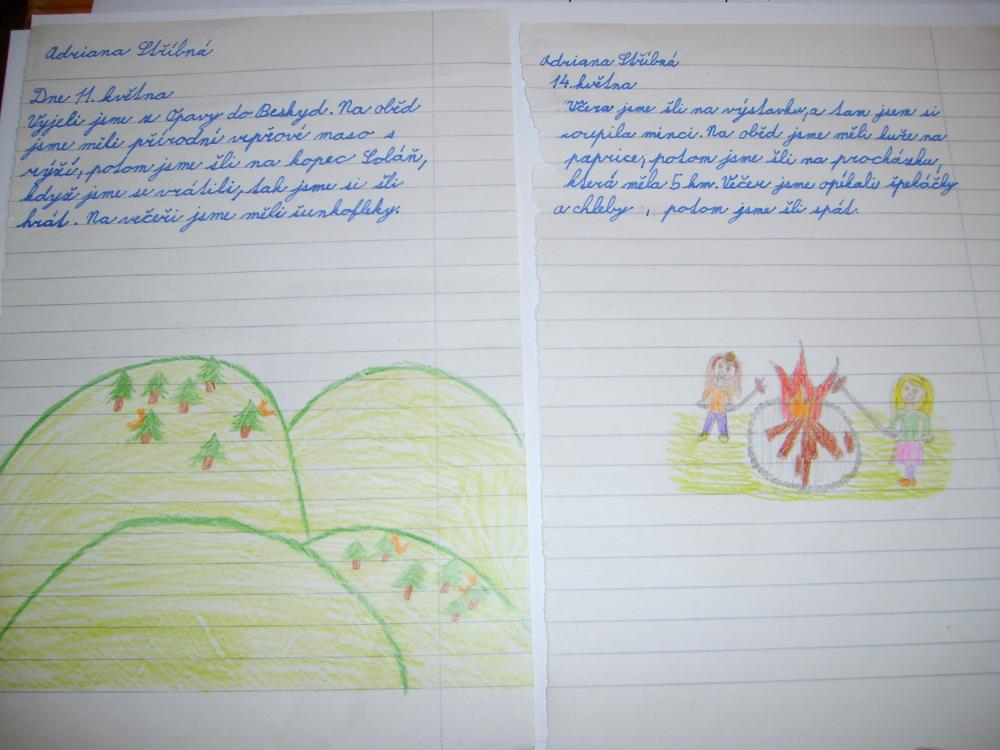 Adriana Stříbná
Dne 11. května
Vyjeli jsme z Opavy do Beskyd. Na oběd
jsme měli přírodní vepřové maso s
rýží, potom jsme šli na kopec Soláň,
když jsme se vrátili, tak jsme si šli
hrát. Na večeři jsme měli šunkofleky.
Adriana Stříbná
14. května
Včera jsme šli na výstavku, a tam jsem si
koupila minci. Na oběd jsme měli kuře na
paprice, potom jsme šli na procházku,
která měla 5 km. Večer jsme opékali špekáčky
a chleby , potom jsme šli spát.